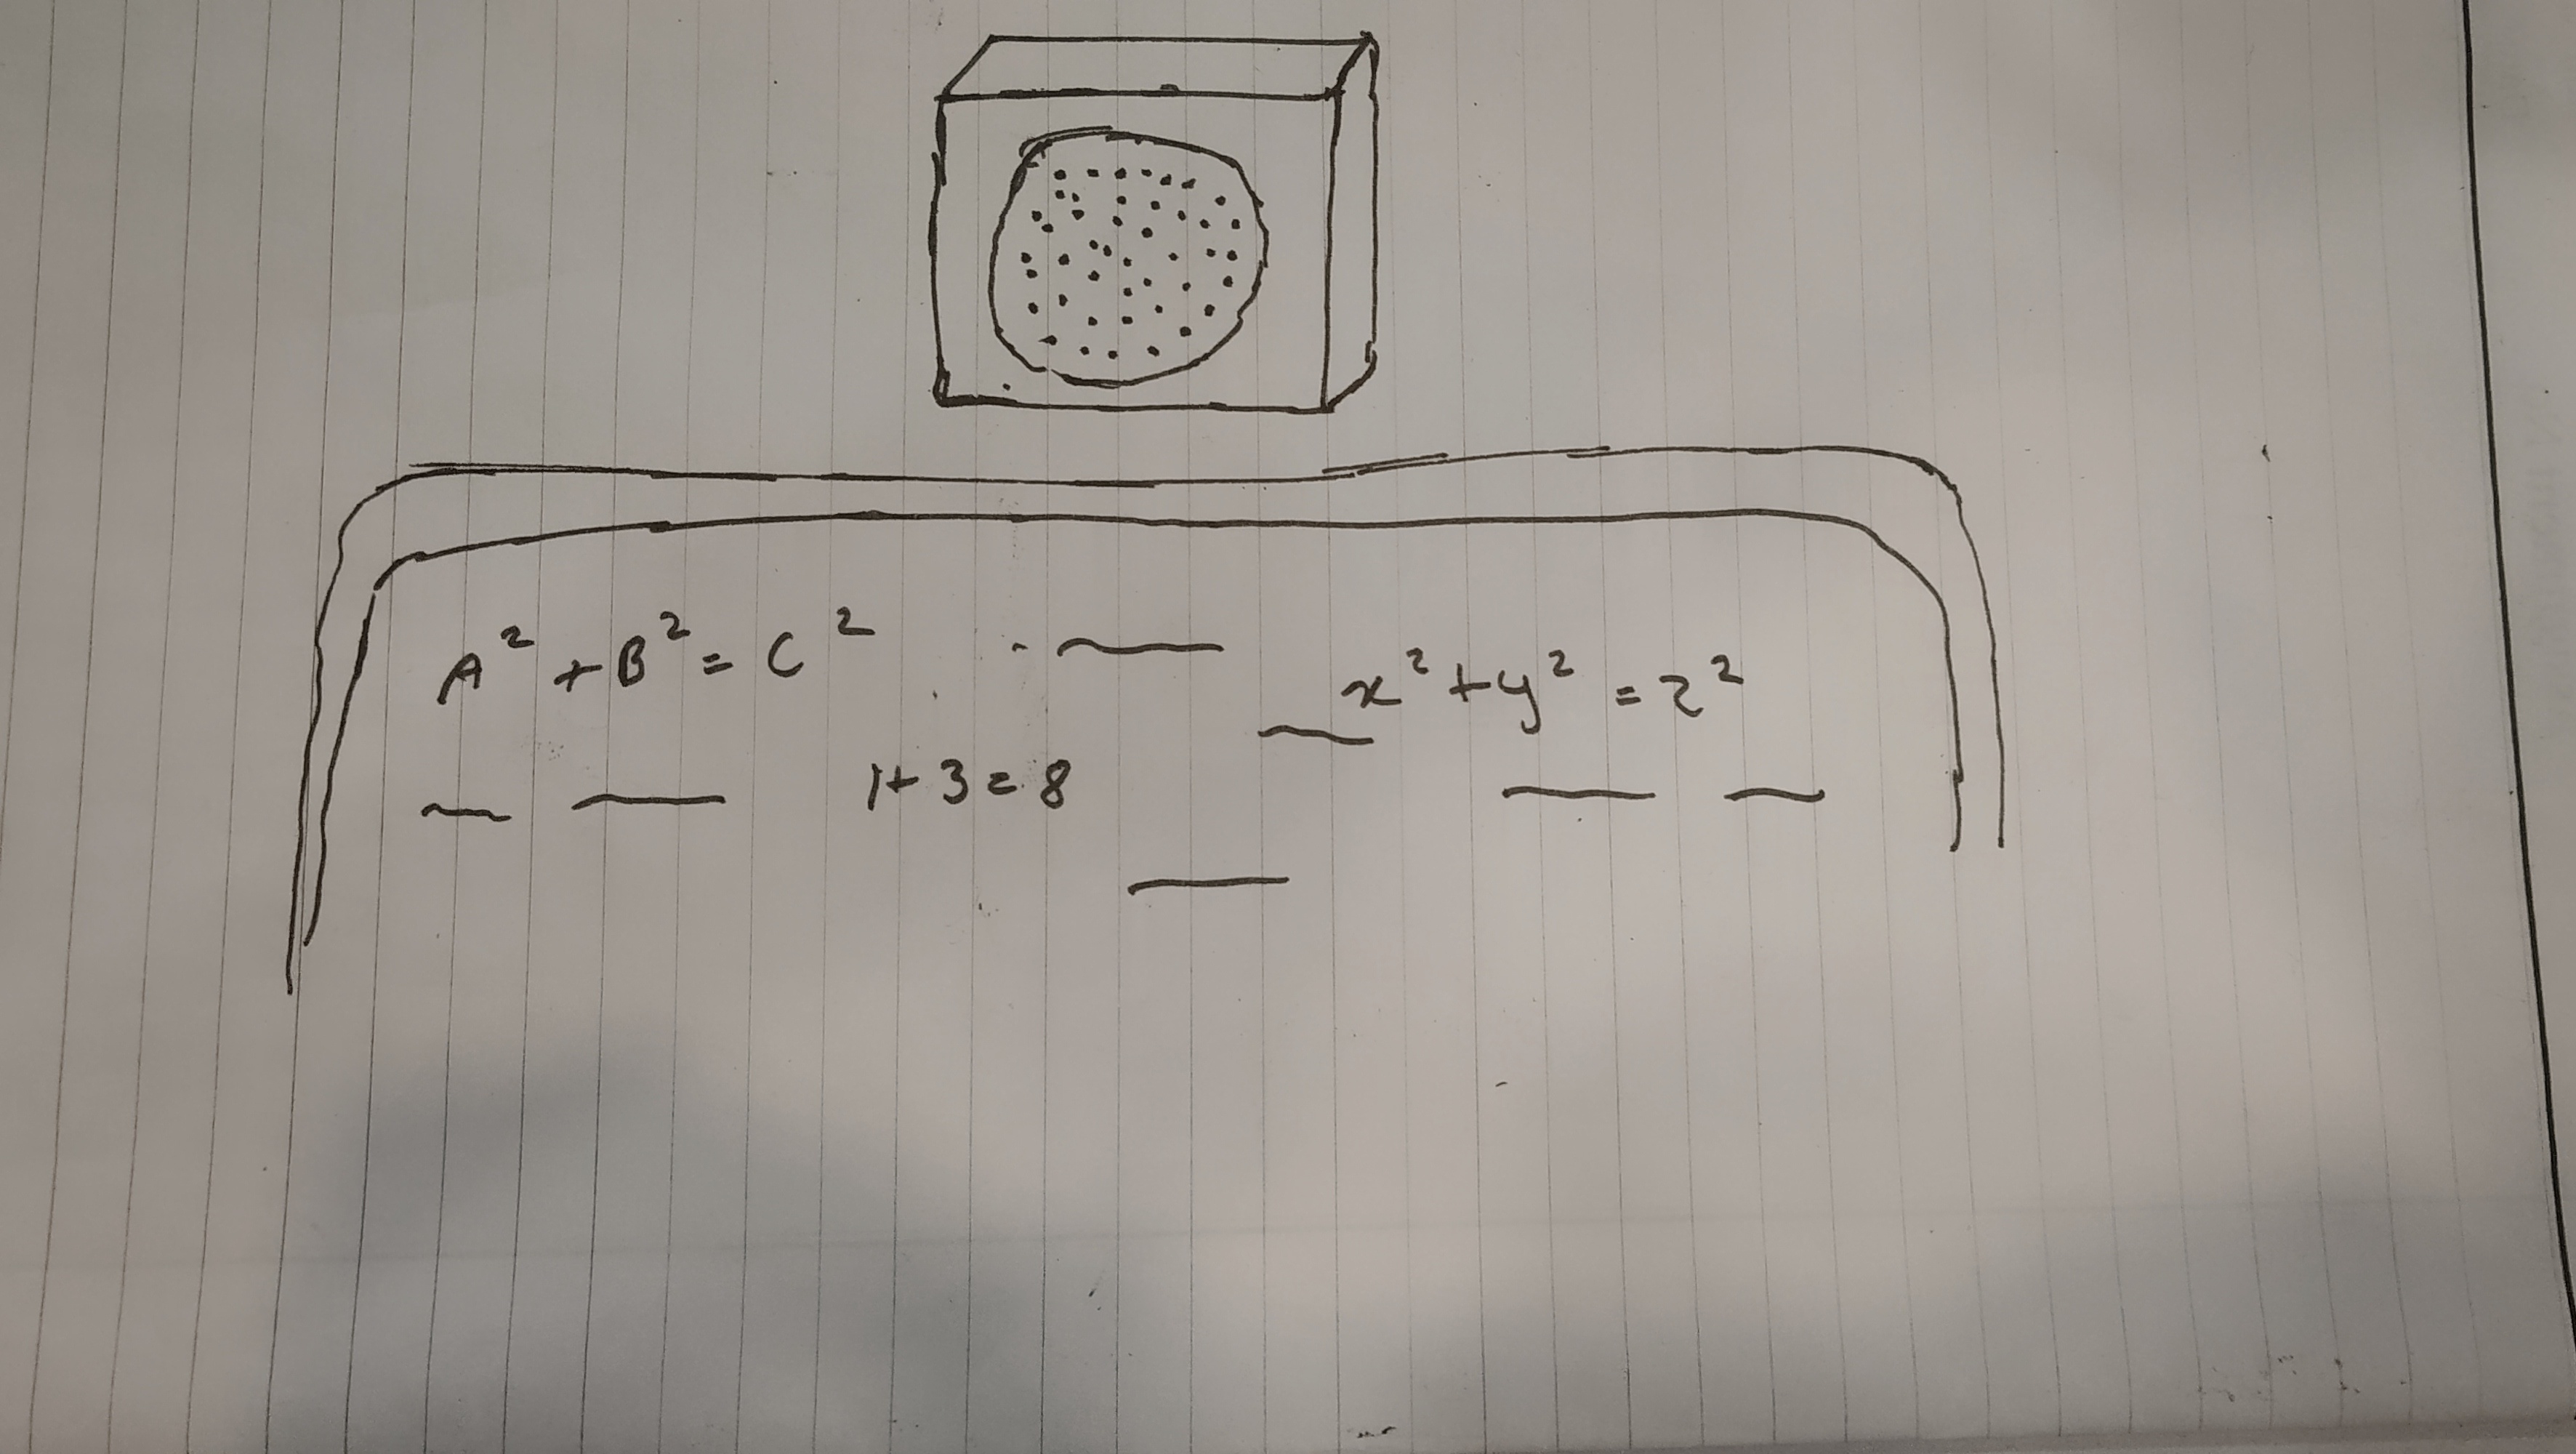 A² + B² = C²
x² + y² = z²
1 + 3 = 8